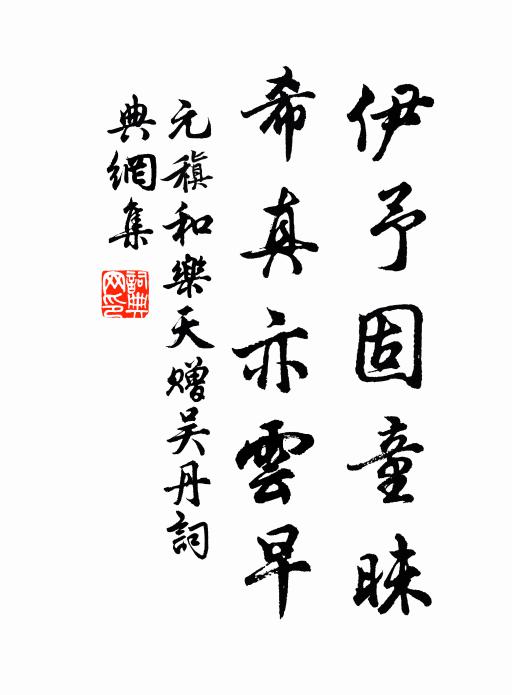 伊予固童昧
希真亦雲早
元稹和樂天贈吴丹詞
典網集
詞典网印